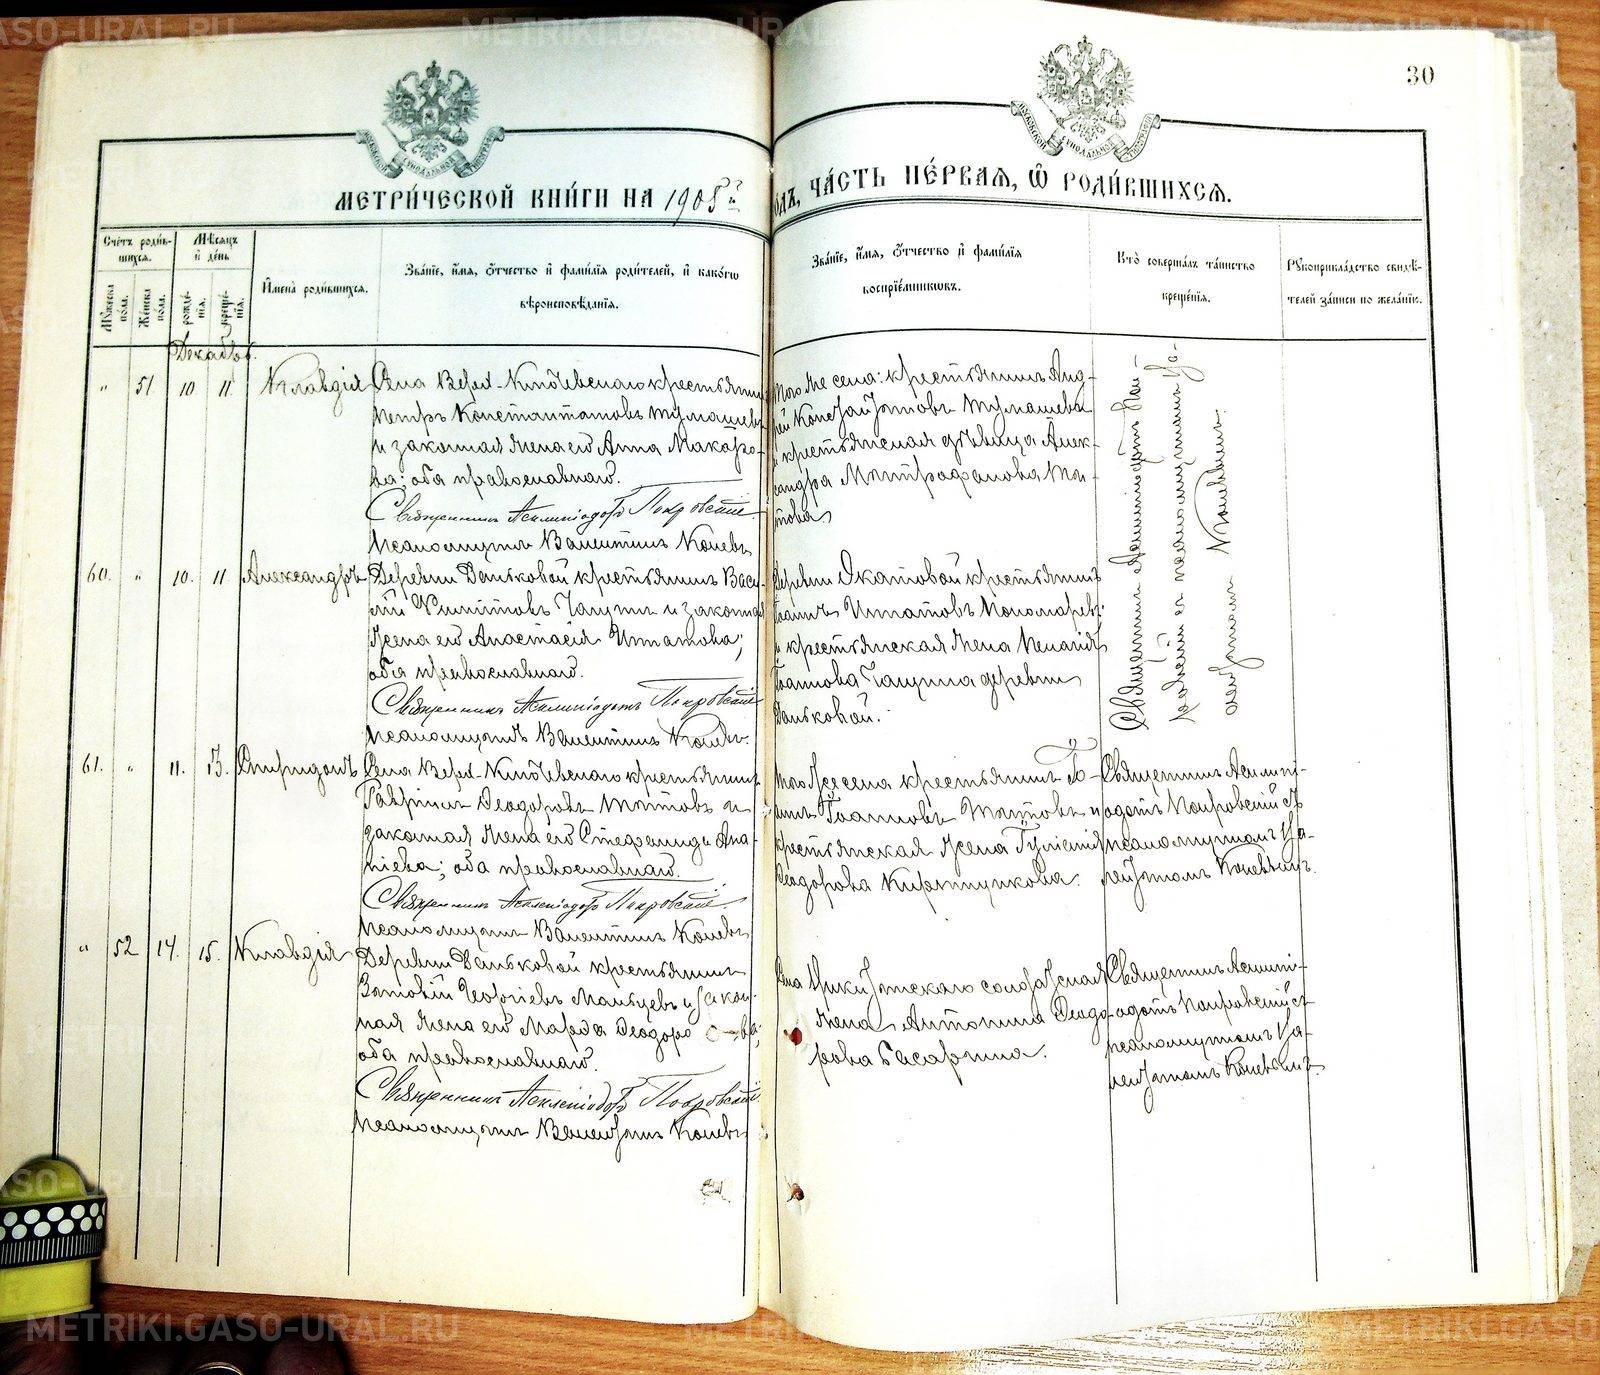 METRIKI.GASO-URAL.RU
30
МЕТРИ́ЧЕСКОЙ КНИ́ГИ НА 1908й
ОДЪ, ЧА́СТЬ ПЕ́РВАЯ, Ѡ РОДИ́ВШИХСЯ.
Сче́тъ роди́в-
шихся.
Му́жеска по́ла.
Же́нска по́ла.
Мѣ́сяцъ и де́нь
рожде́-
нія.
креще́-
нія.
И҆мена̀ роди́вшихся.
Зва́ніе, и҆́мя, ѻ҆́тчество и҆ фами́лія роди́телей, и҆ како́гѡ
вѣроисповѣ́данія.
Зва́ніе, и҆́мя, ѻ҆́тчество и҆ фами́лія
воспріе́мникѡвъ.
Кто̀ соверша́лъ та́инство
креще́нія.
Рꙋкоприкла́дство свидѣ́-
телей за́писи по жела́нію.
Декабрь.
" 51 10 11 Клавдія
Села Верх-Ключевскаго крестьянинъ
Петръ Константиновъ Тумашевъ
и законная жена его Анна Макаро-
ва; оба православные.
Священникъ Асклипіодотъ Покровскій
Псаломщикъ Валентинъ Коневъ
того же села: крестьянинъ Анд-
рей Константиновъ Тумашевъ
и крестьянская дѣвица Алек-
сандра Митрофанова
Священникъ Асклипіодотъ По-
кровскій съ псаломщикомъ Ва-
лентиномъ Коневымъ.
60. " 10. 11 Александръ
Деревни Даньковой крестьянинъ Васи-
лій и законная
жена его Анастасія Игнатова;
оба православные.
Священникъ Асклипіодотъ Покровскій
Псаломщикъ Валентинъ Коневъ.
Деревни крестьянинъ
Іоаннъ Игнатовъ Пономаревъ
и крестьянская жена
Іоаннова деревни
Даньковой.
61. " 11. 13. Спиридонъ
Села Верх-Ключевскаго крестьянинъ
Гавріилъ Ѳеодоровъ и
законная жена его Стефанида Ана-
ніева; оба православные.
Священникъ Асклипіодотъ Покровскій
Псаломщикъ Валентинъ Коневъ
того же села крестьянинъ
Іоанновъ и
крестьянская жена
Ѳеодорова
Священникъ Асклипі-
одотъ Покровскій съ
псаломщикомъ Ва-
лентиномъ Коневымъ.
" 52 14. 15. Клавдія
Деревни Даньковой крестьянинъ
Георгіевъ Мальцевъ и закон-
ная жена его Марѳа Ѳеодорова;
оба православные.
Священникъ Асклипіодотъ Покровскій
Псаломщикъ Валентинъ Коневъ
Села солдатская
жена Антонина Ѳеодо-
рова Гагарина.
Священникъ Асклипі-
одотъ Покровскій съ
псаломщикомъ Ва-
лентиномъ Коневымъ.
METRIKI.GASO-URAL.RU